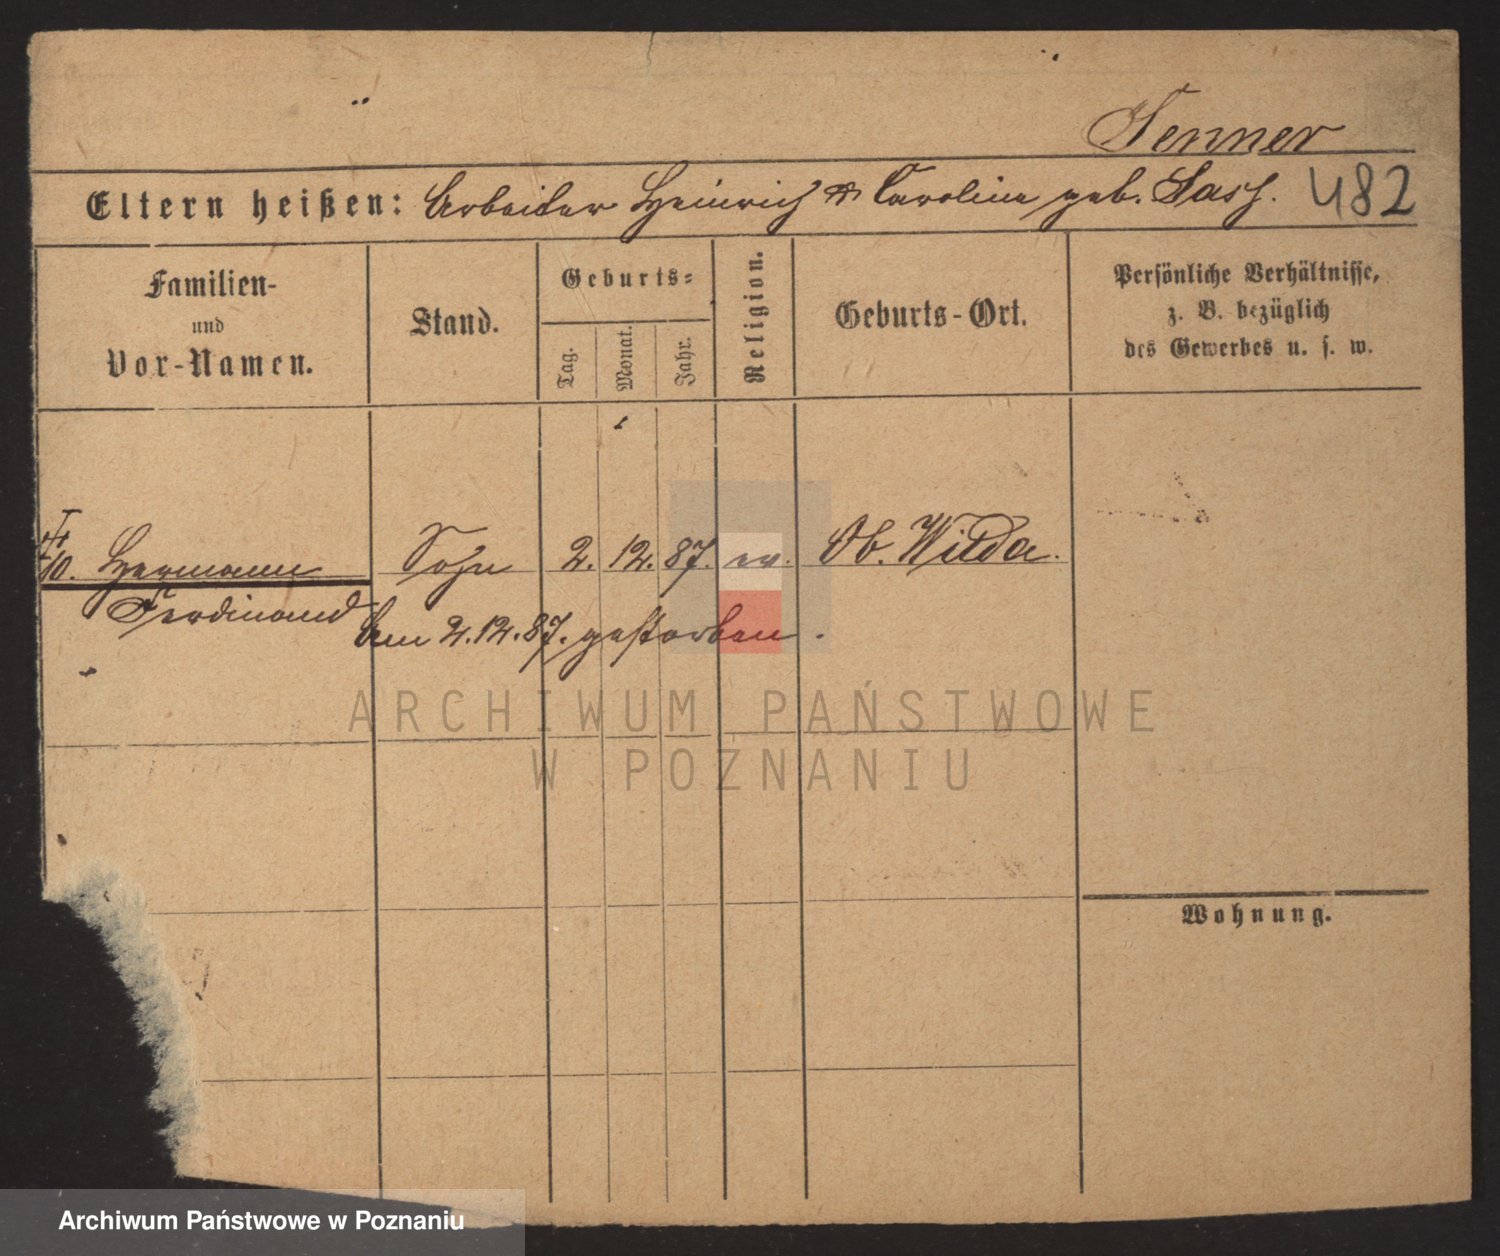 Tenner
Eltern heißen: Arbeiter Heinrich & Carolina geb. Sass. 482
Familien-
und
Vor-Namen.
Stand.
Geburts-
Tag.
Monat.
Jahr.
Religion.
Geburts-Ort.
Persönliche Verhältnisse,
z. B. bezüglich
des Gewerbes u. s. w.
10. Hermann Sohn 2. 12. 87. ev. Ob. Wilda.
Ferdinand
am 2.12.87. gestorben.
ARCHIWUM PAŃSTWOWE
W POZNANIU
Wohnung.
Archiwum Państwowe w Poznaniu